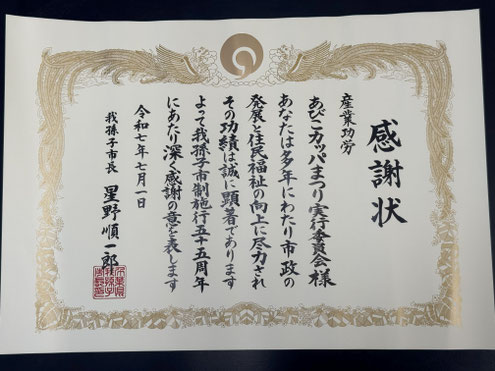 感謝状
産業功労
あびこカッパまつり実行委員会様
あなたは多年にわたり市政の
発展と住民福祉の向上に尽力され
その功績は誠に顕著であります
よって我孫子市制施行五十五周年
にあたり深く感謝の意を表します
令和七年七月一日
我孫子市長 星野順一郎